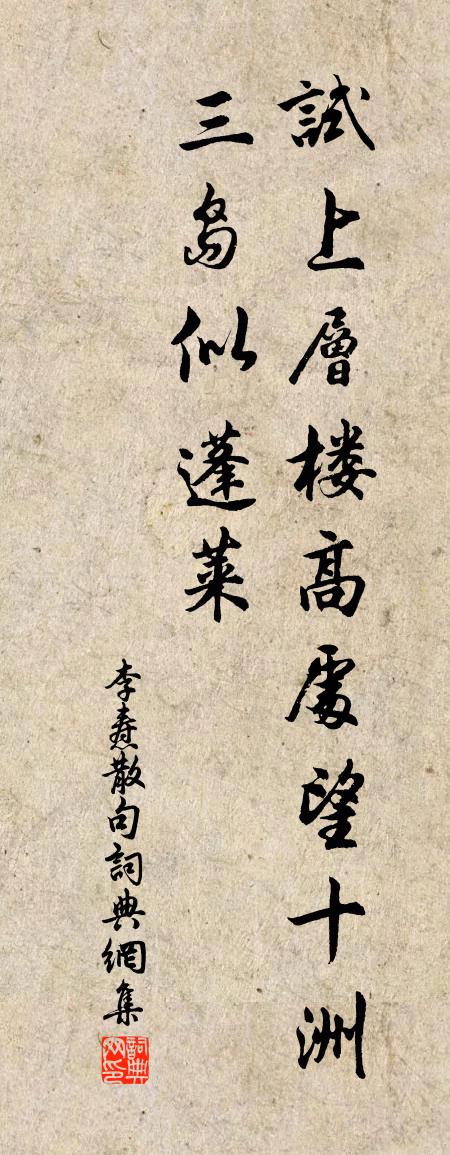 試上層楼高處望十洲
三島似蓬萊
李焘散句詞典網集
詞典网印